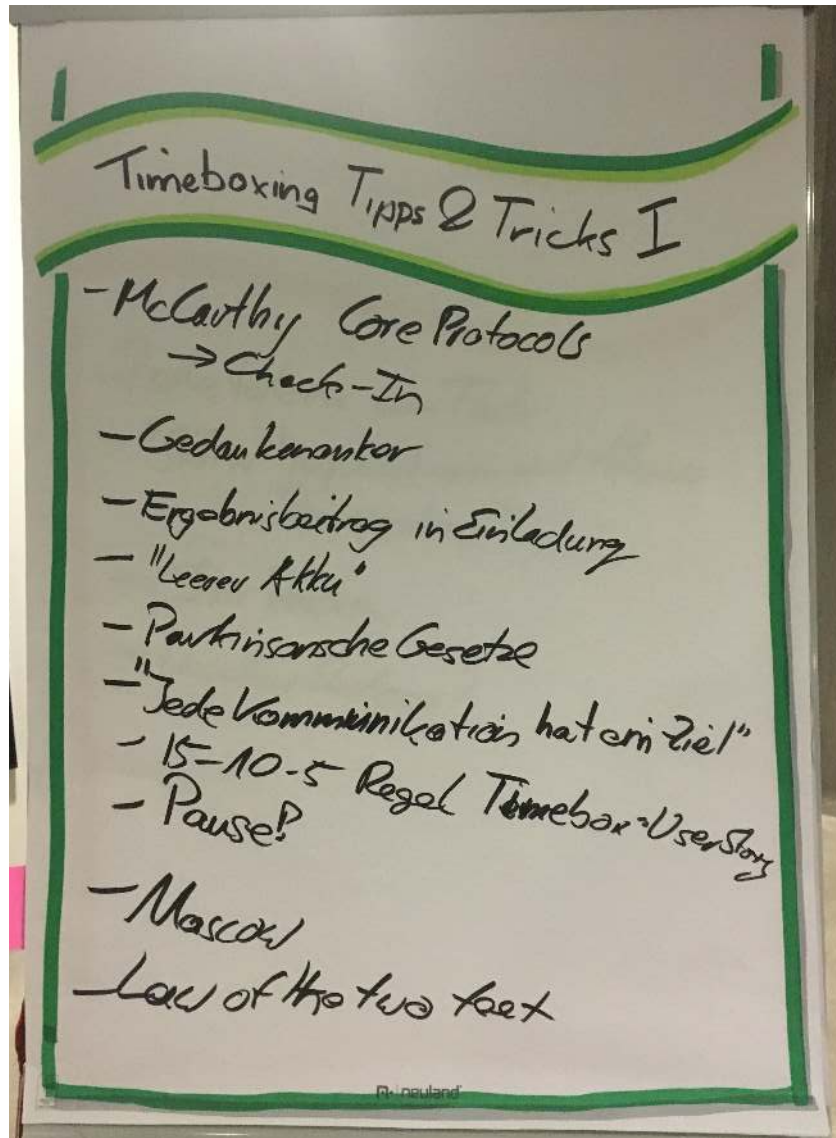 Timeboxing Tipps & Tricks I
- McCarthy Core Protocols
→ Check-In
- Gedankenanker
- Ergebnisbeitrag in Einladung
- "Leerer Akku"
- Parkinsonsche Gesetze
- "Jede Kommunikation hat ein Ziel"
- 15-10-5 Regel Timebox=UserStory
- Pause!
- Moscow
- Law of the two feet
neuland